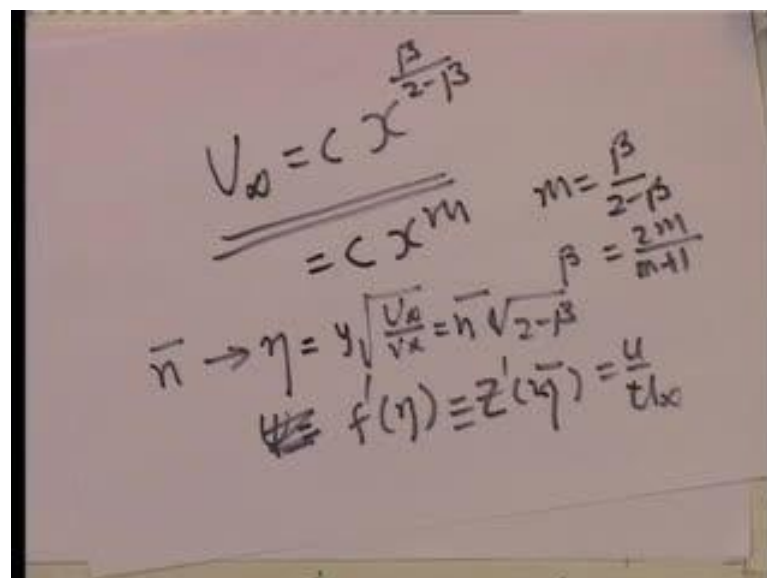 U∞ = c x^(β/(2-β))
= c x^m
m = β/(2-β)
β = 2m/(m+1)
η̅ → η = y√(U∞/νx) = η̅ √(2-β)
f'(η) ≡ Z'(η̅) = u/U∞